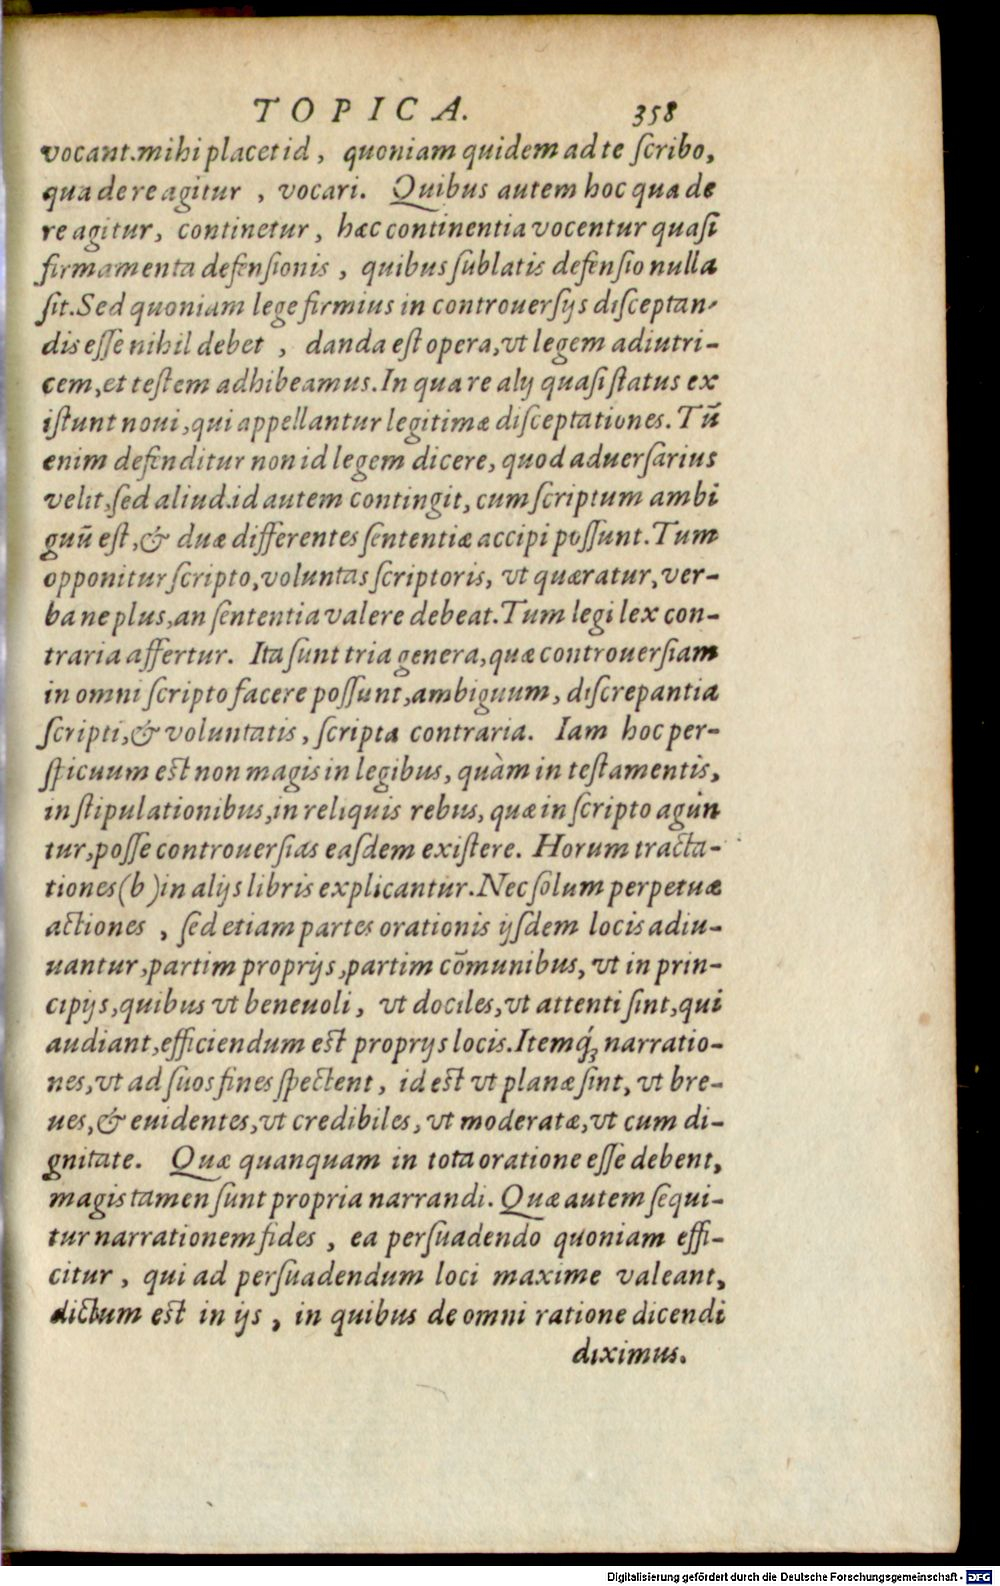 TOPICA. 358
vocant. mihi placet id, quoniam quidem ad te ſcribo,
qua de re agitur, vocari. Quibus autem hoc qua de
re agitur, continetur, hæc continentia vocentur quaſi
firmamenta defenſionis, quibus ſublatis defenſio nulla
ſit. Sed quoniam lege firmius in controuerſijs diſceptan-
dis eſſe nihil debet, danda eſt opera, vt legem adiutri-
cem, et teſtem adhibeamus. In qua re alij quaſi ſtatus ex
iſtunt noui, qui appellantur legitimæ diſceptationes. Tū
enim defenditur non id legem dicere, quod aduerſarius
velit, ſed aliud. id autem contingit, cum ſcriptum ambi
guū eſt, & duæ differentes ſententiæ accipi poſſunt. Tum
opponitur ſcripto, voluntas ſcriptoris, vt quæratur, ver-
ba ne plus, an ſententia valere debeat. Tum legi lex con-
traria affertur. Ita ſunt tria genera, quæ controuerſiam
in omni ſcripto facere poſſunt, ambiguum, diſcrepantia
ſcripti, & voluntatis, ſcripta contraria. Iam hoc per-
ſpicuum est non magis in legibus, quàm in teſtamentis,
in ſtipulationibus, in reliquis rebus, quæ in ſcripto agun
tur, poſſe controuerſias eaſdem exiſtere. Horum tracta-
tiones (b) in alijs libris explicantur. Nec ſolum perpetuæ
actiones, ſed etiam partes orationis ijſdem locis adiu-
uantur, partim proprijs, partim cōmunibus, vt in prin-
cipijs, quibus vt beneuoli, vt dociles, vt attenti ſint, qui
audiant, efficiendum est proprijs locis. Itemq́ꝫ narratio-
nes, vt ad ſuos fines ſpectent, id est vt planæ ſint, vt bre-
ues, & euidentes, vt credibiles, vt moderatæ, vt cum di-
gnitate. Quæ quanquam in tota oratione eſſe debent,
magis tamen ſunt propria narrandi. Quæ autem ſequi-
tur narrationem fides, ea perſuadendo quoniam effi-
citur, qui ad perſuadendum loci maxime valeant,
dictum est in ijs, in quibus de omni ratione dicendi
diximus.
Digitalisierung gefördert durch die Deutsche Forschungsgemeinschaft - DFG